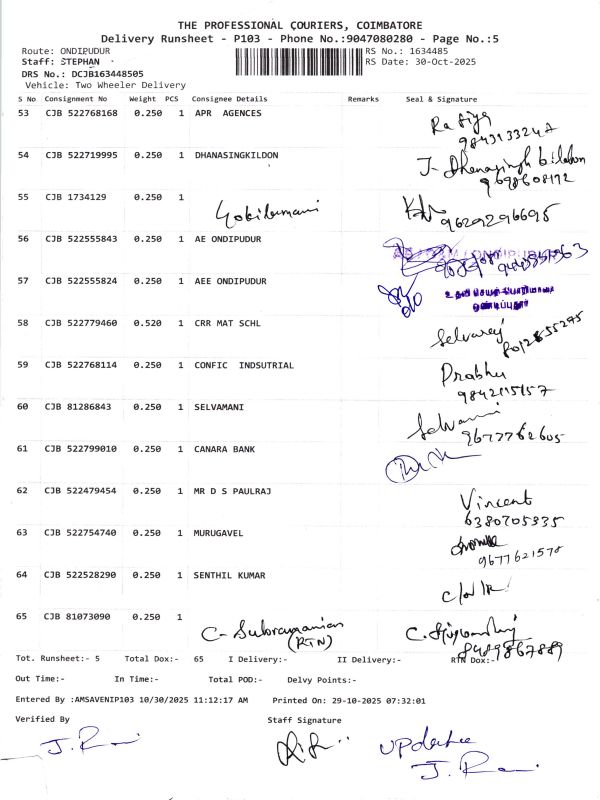 THE PROFESSIONAL COURIERS, COIMBATORE
Delivery Runsheet - P103 - Phone No.:9047080280 - Page No.:5
Route: ONDIPUDUR RS No.: 1634485
Staff: STEPHAN RS Date: 30-Oct-2025
DRS No.: DCJB163448505
Vehicle: Two Wheeler Delivery
S No Consignment No Weight PCS Consignee Details Remarks Seal & Signature
53 CJB 522768168 0.250 1 APR AGENCES
9843133247
54 CJB 522719995 0.250 1 DHANASINGKILDON
J- Dhanasingh kildon
9698608172
55 CJB 1734129 0.250 1
Gokilamani 9629296695
56 CJB 522555843 0.250 1 AE ONDIPUDUR
57 CJB 522555824 0.250 1 AEE ONDIPUDUR
உதவி செயற்பொறியாளர்
ஒண்டிப்புதூர்
58 CJB 522779460 0.520 1 CRR MAT SCHL
Selvaraj
59 CJB 522768114 0.250 1 CONFIC INDSUTRIAL
Prabhu
9842115157
60 CJB 81286843 0.250 1 SELVAMANI
Selvamani
9677762605
61 CJB 522799010 0.250 1 CANARA BANK
62 CJB 522479454 0.250 1 MR D S PAULRAJ
Vincent
6380705335
63 CJB 522754740 0.250 1 MURUGAVEL
9677621578
64 CJB 522528290 0.250 1 SENTHIL KUMAR
65 CJB 81073090 0.250 1
C- Subramanian
(RTN)
8489867889
Tot. Runsheet:- 5 Total Dox:- 65 I Delivery:- II Delivery:- RTN Dox:-
Out Time:- In Time:- Total POD:- Delvy Points:-
Entered By :AMSAVENIP103 10/30/2025 11:12:17 AM Printed On: 29-10-2025 07:32:01
Verified By Staff Signature
J. Rani Update
J. Rani